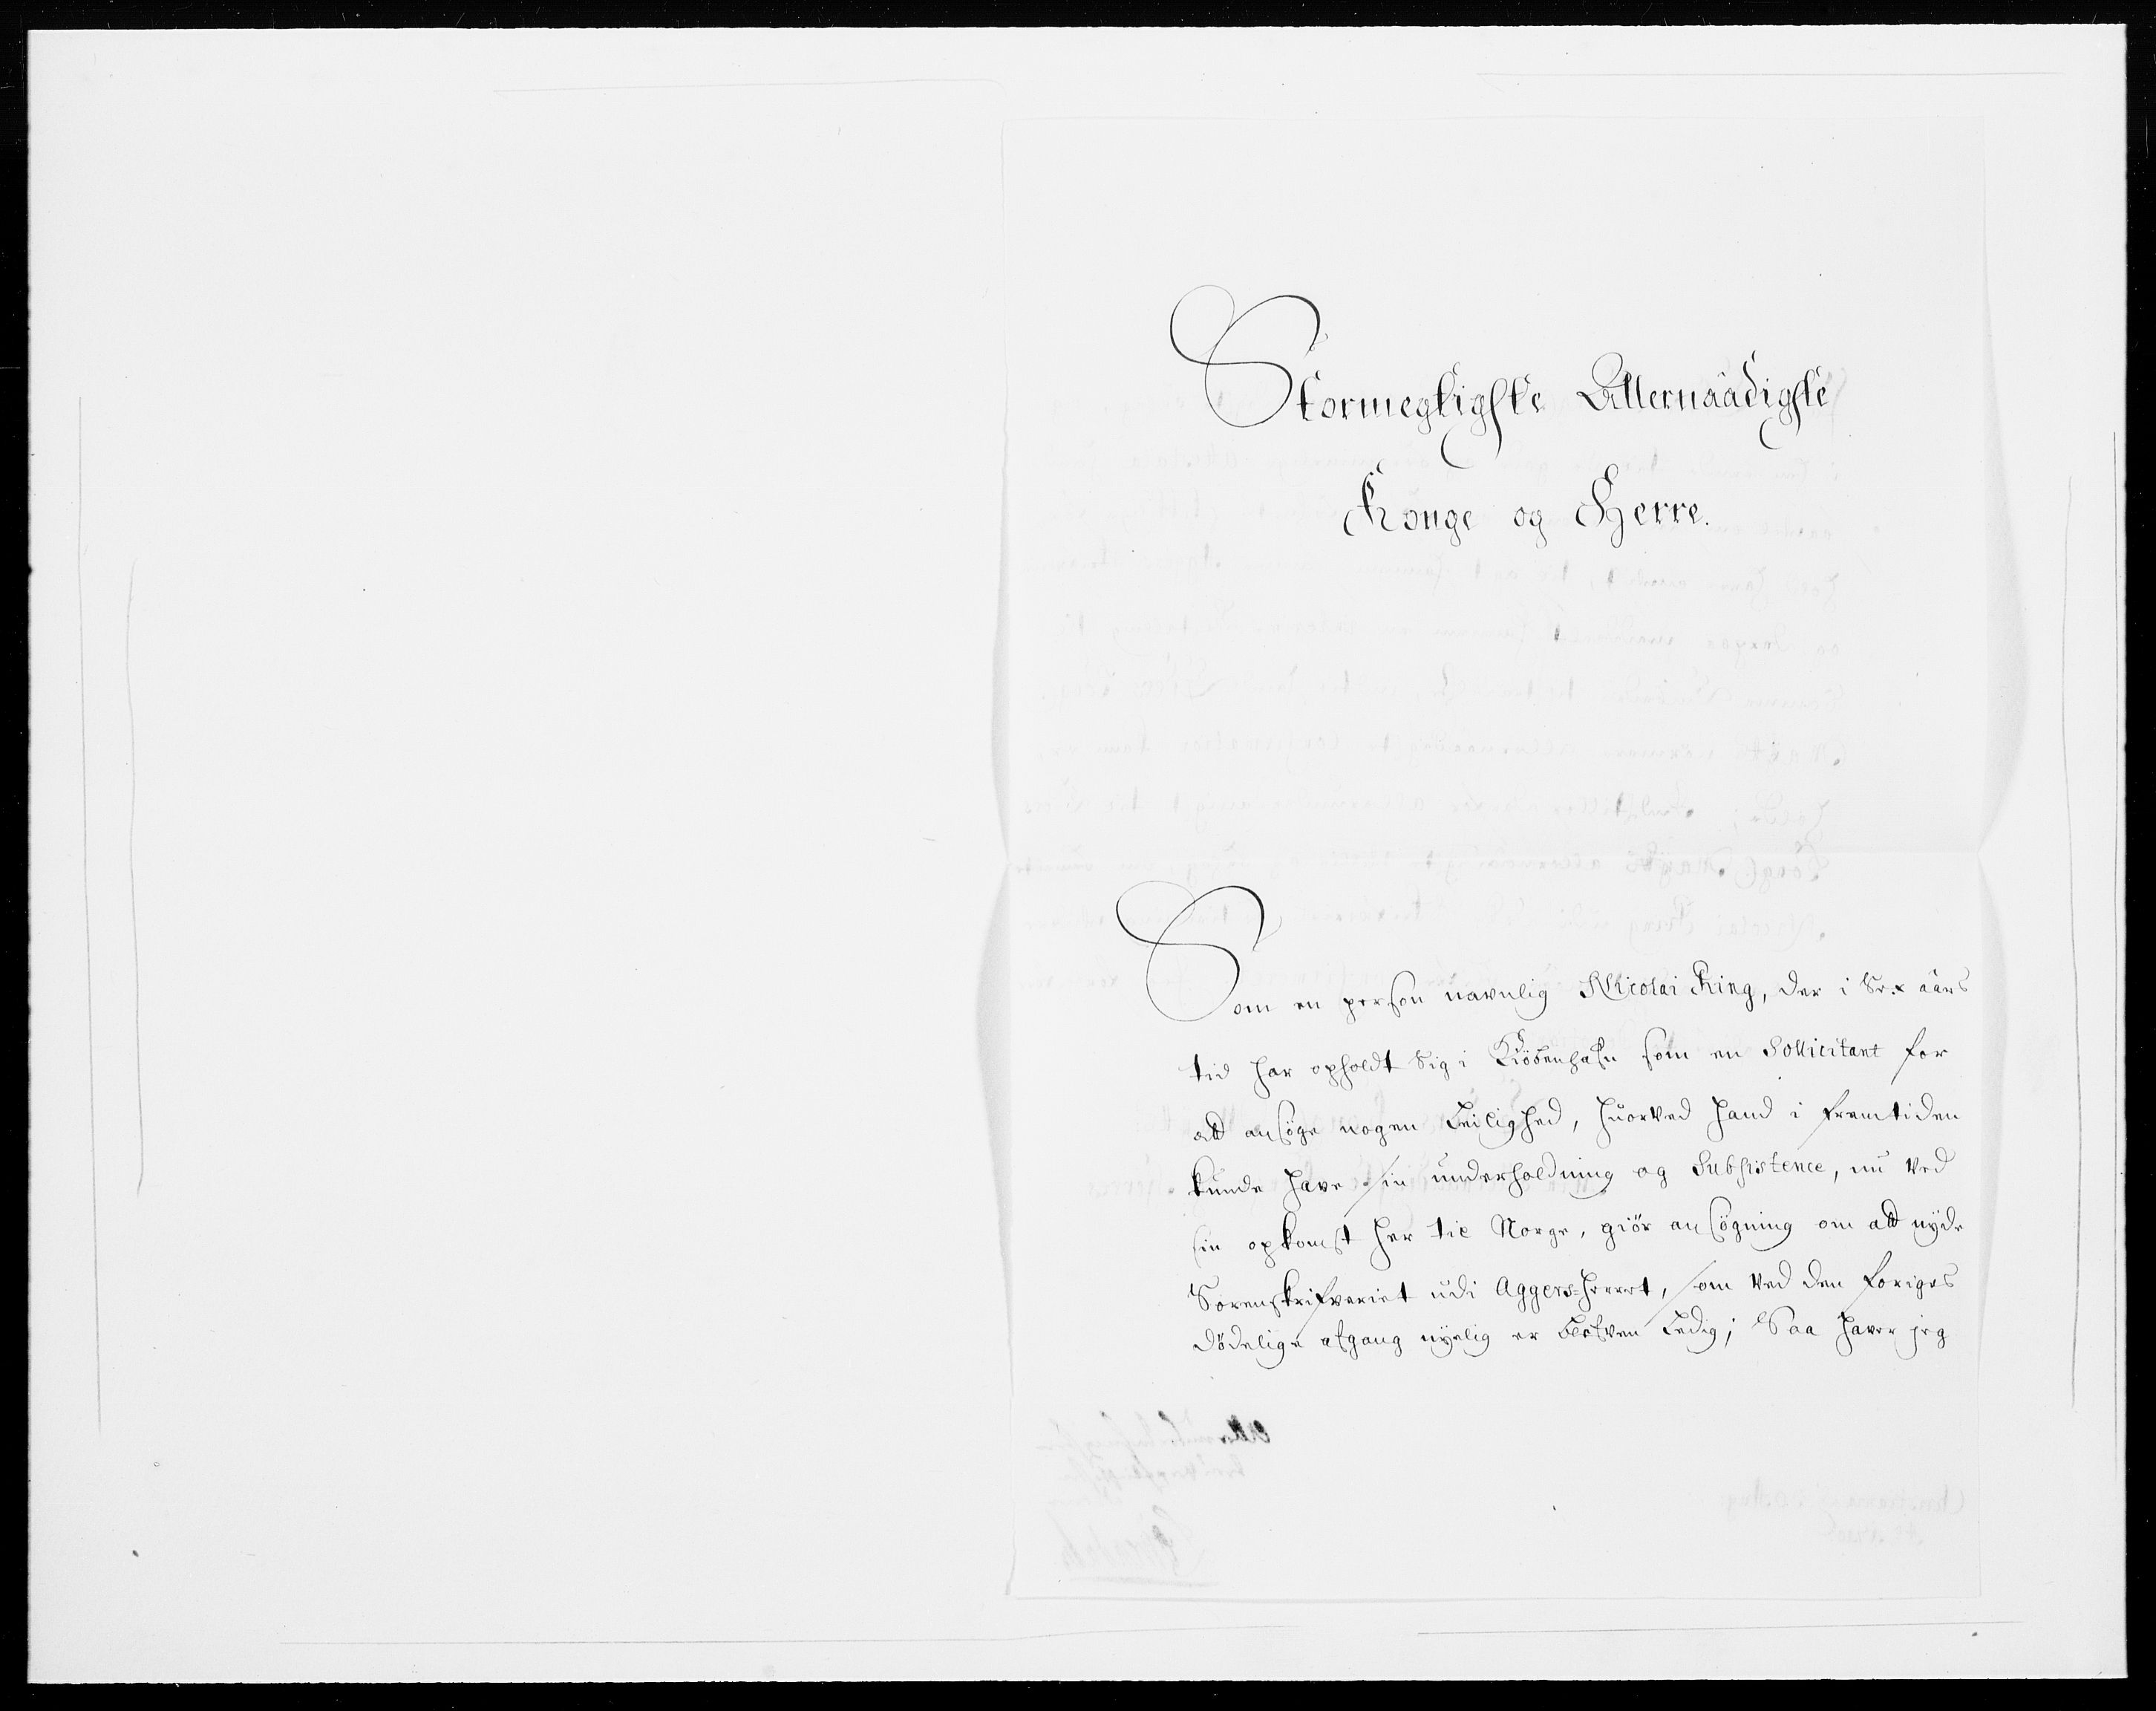 Stormegtigste Allernaadigste
Konge og Herre.
Som en person navnlig Nicolai Ring, der i Sex aars
tid har opholdt Sig i Kiöbenhafn som en Sollicitant for
att ansöge nogen Leilighed, huorved hand i fremtiden
kunde have sin underholdning og Subsistence, nu ved
sin opkomst her til Norge, giör ansögning om att nyde
Sorenskrifveriet udi Aggers-herret, som ved den foriges
dödelige afgang nyelig er blefven Ledig; Saa haver jeg